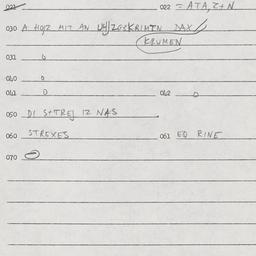 021 022 = ATA, Z+N
030 A HOJZ MIT AN DAX
KRUMEN
031 6
040 0
041 0 042 0
050 DI S+TREJ IZ NAS
060 STREXES 061 EQ RINE
070 0